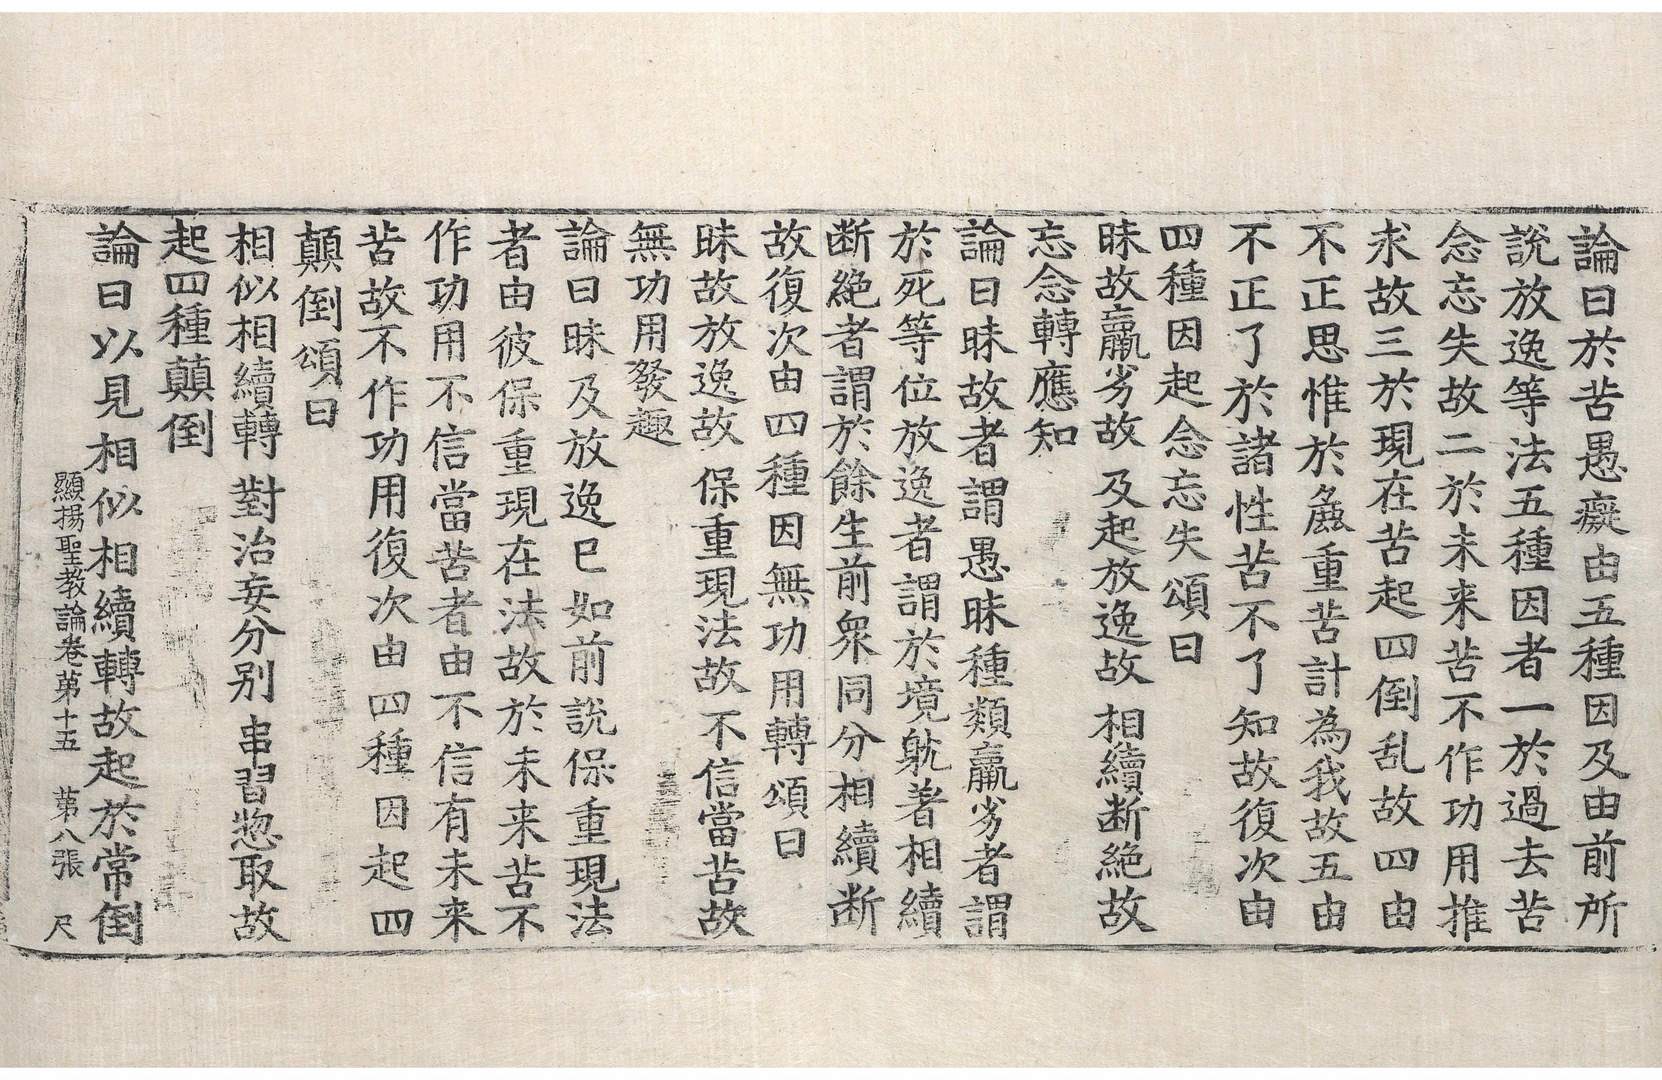 論曰於苦愚癡由五種因及由前所
說放逸等法五種因者一於過去苦
念忘失故二於未来苦不作功用推
求故三於現在苦起四倒乱故四由
不正思惟於麁重苦計為我故五由
不正了於諸性苦不了知故復次由
四種因起念忘失頌曰
昧故羸劣故 及起放逸故 相續断絶故
忘念轉應知
論曰昧故者謂愚昧種類羸劣者謂
於死等位放逸者謂於境躭著相續
断絶者謂於餘生前衆同分相續断
故復次由四種因無功用轉頌曰
昧故放逸故 保重現法故 不信當苦故
無功用發趣
論曰昧及放逸已如前說保重現法
者由彼保重現在法故於未来苦不
作功用不信當苦者由不信有未来
苦故不作功用復次由四種因起四
顛倒頌曰
相似相續轉 對治妄分别 串習惣取故
起四種顛倒
論曰以見相似相續轉故起於常倒
顯揚聖教論卷第十五 第八張 尺